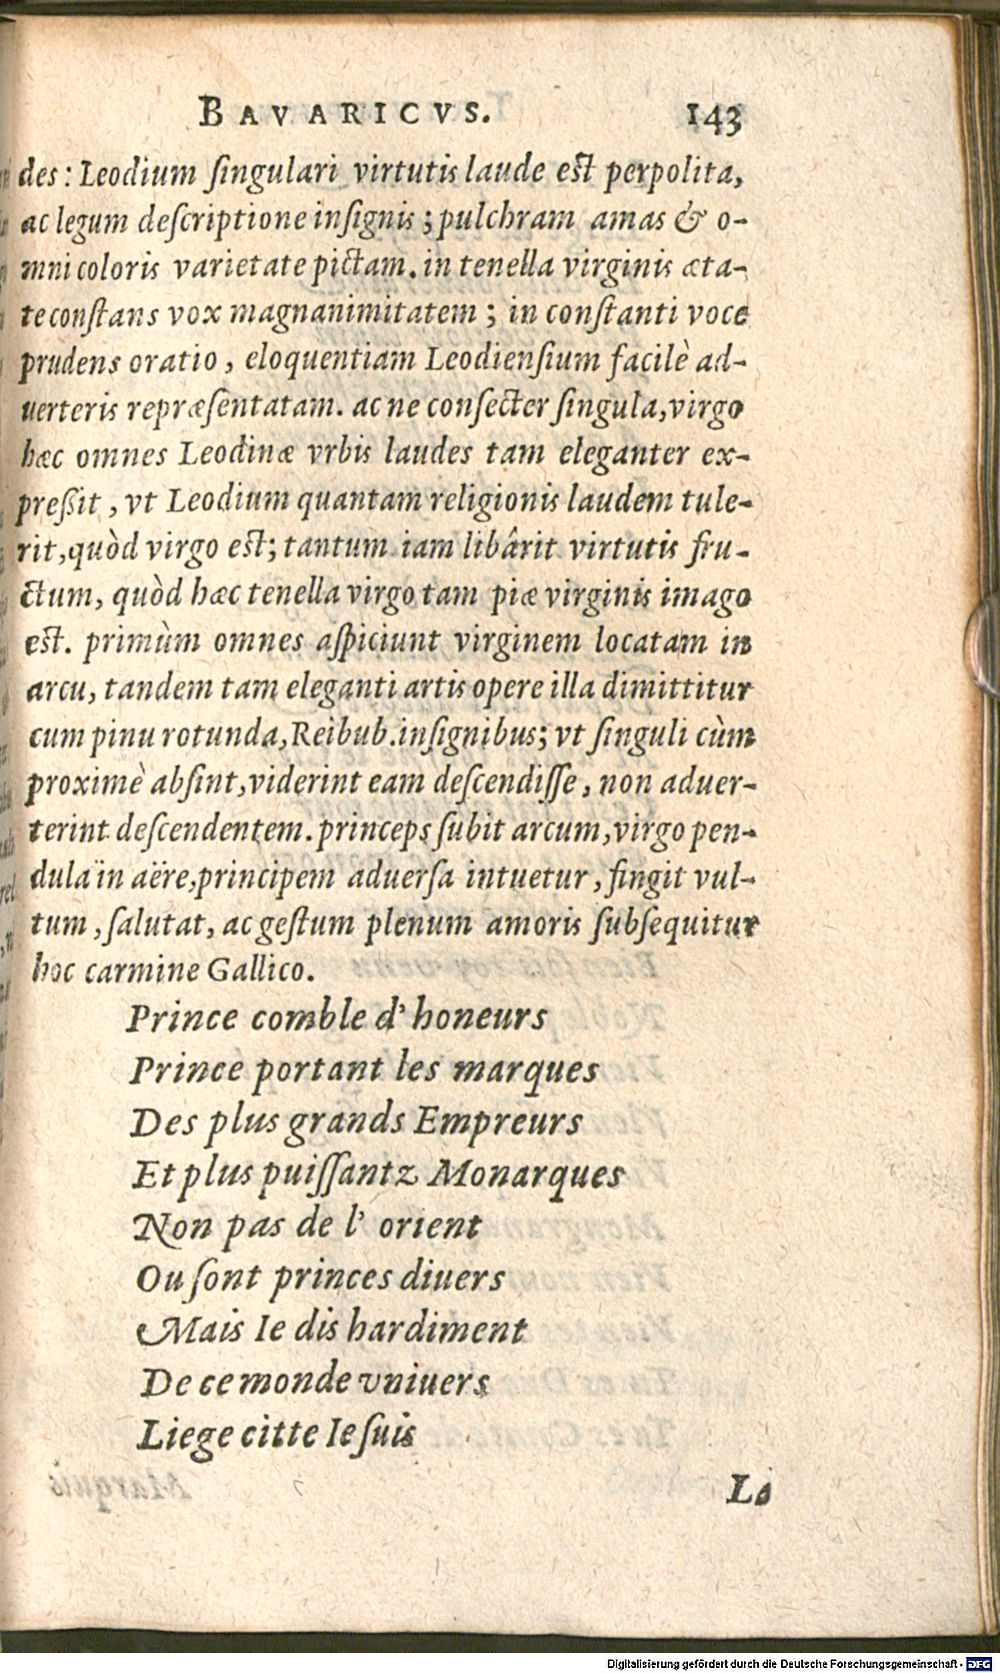 BAVARICVS. 143
des: Leodium ſingulari virtutis laude eſt perpolita,
ac legum deſcriptione inſignis; pulchram amas & o-
mni coloris varietate pictam. in tenella virginis æta-
te conſtans vox magnanimitatem; in conſtanti voce
prudens oratio, eloquentiam Leodienſium facilè ad-
uerteris repræſentatam. ac ne conſecter ſingula, virgo
hæc omnes Leodinæ vrbis laudes tam eleganter ex-
preßit, vt Leodium quantam religionis laudem tule-
rit, quòd virgo eſt; tantum iam libârit virtutis fru-
ctum, quòd hæc tenella virgo tam piæ virginis imago
eſt. primùm omnes aſpiciunt virginem locatam in
arcu, tandem tam eleganti artis opere illa dimittitur
cum pinu rotunda, Reibub. inſignibus; vt ſinguli cùm
proximè abſint, viderint eam deſcendiſſe, non aduer-
terint deſcendentem. princeps ſubit arcum, virgo pen-
dula in aëre, principem aduerſa intuetur, fingit vul-
tum, ſalutat, ac geſtum plenum amoris ſubſequitur
hoc carmine Gallico.
Prince comble d' honeurs
Prince portant les marques
Des plus grands Empreurs
Et plus puiſſantz Monarques
Non pas de l' orient
Ou ſont princes diuers
Mais Ie dis hardiment
De ce monde vniuers
Liege citte Ie ſuis
Digitalisierung gefördert durch die Deutsche Forschungsgemeinschaft - DFG